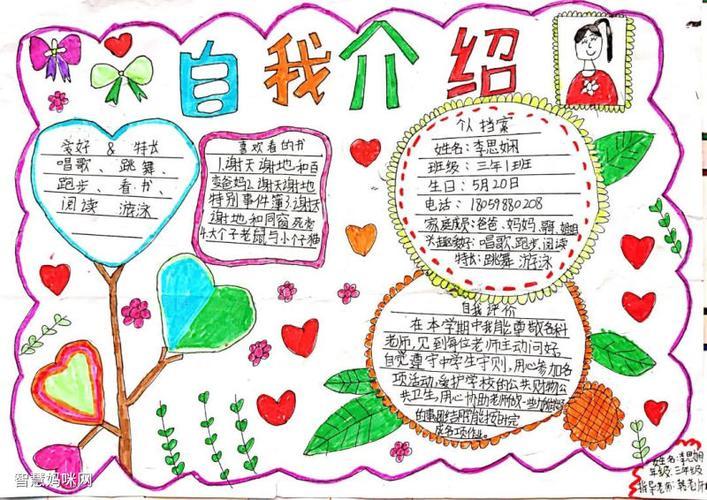 自我介绍
爱好 & 特长
唱歌、跳舞、
跑步、看书、
阅读 游泳
喜欢看的书
1.谢天谢地和百
变爸妈2.谢天谢地
特别事件簿3.谢天
谢地和同窗死党
4.大个子老鼠与小个子猫
个人档案
姓名:李思妍
班级:三年1班
生日:5月20日
电话:18059880208
家庭成员:爸爸、妈妈、哥、姐姐
兴趣教好:唱歌、跑步、阅读
特长:跳舞 游泳
自我评价
在本学期中我能尊敬各科
老师,见到每位老师主动问好。
自觉遵守中学生守则,用心参加各
项活动,爱护学校的公共财物公
共卫生,用心协助老师做一些力所能及
的事,
成各项作业。
姓名:李思妍
年级:三年级
指导老师:
智慧妈咪网